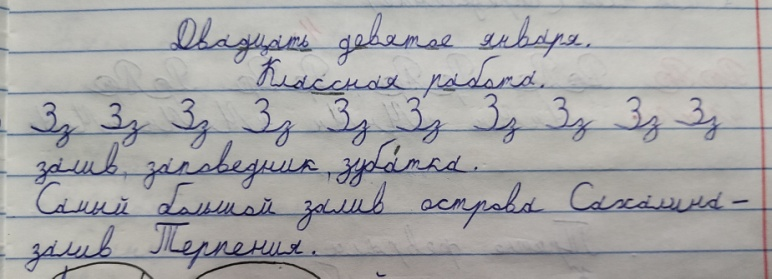 Двадцать девятое января.
Классная работа.
Зз Зз Зз Зз Зз Зз Зз Зз Зз Зз
залив, заповедник, зубатка.
Самый большой залив острова Сахалина-
залив Терпения.